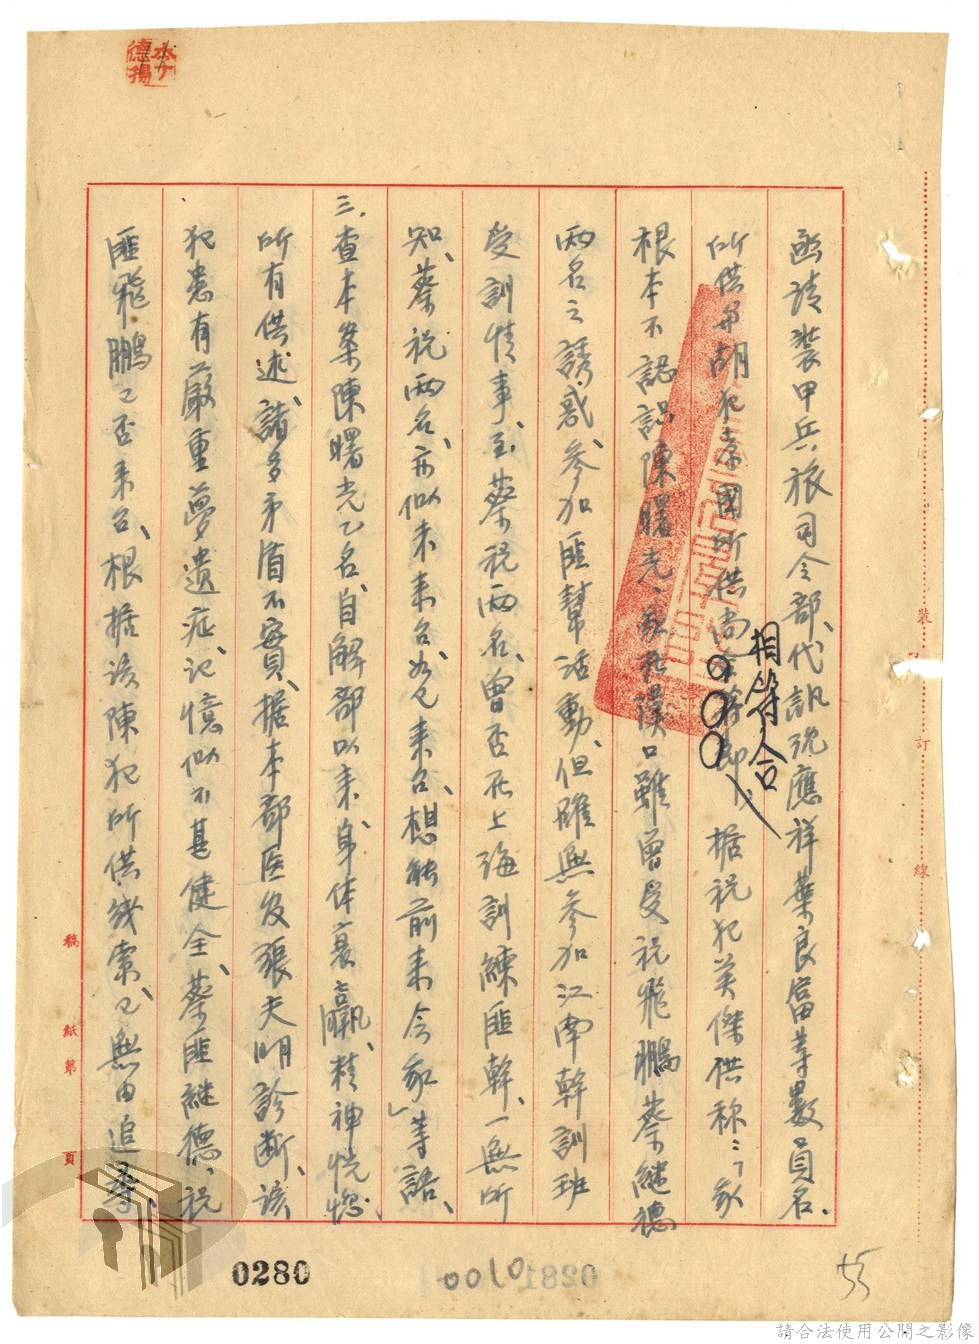 李
德揚
函請裝甲兵旅司令部、代訊沈應祥葉良富等數員名.
所供與胡犯榮國所供尚
相符合
據祝犯英傑供称：「家
根本不認識陳曙光、我在漢口雖曾受祝飛鵬蔡繼德
兩名之誘惑、參加匪幫活動、但確無參加江南幹訓班
受訓情事、至蔡祝兩名、曾否在上海訓練匪幹、一無所
知、蔡祝兩名、亦似未來台、如已来台、想能前来会家」等語、
三、查本案陳曙光乙名、自解部以来、身体衰羸、精神恍惚、
所有供述、諸多矛盾不實、据本部医官張夫明診断、該
犯患有嚴重夢遺症、記憶似不甚健全、蔡匪継德、祝
匪飛鵬之否来台、根据该陳犯所供线索、已無由追尋、
裝
訂
線
稿紙第 頁
0280
0281
00700
55
請合法使用公開之影像